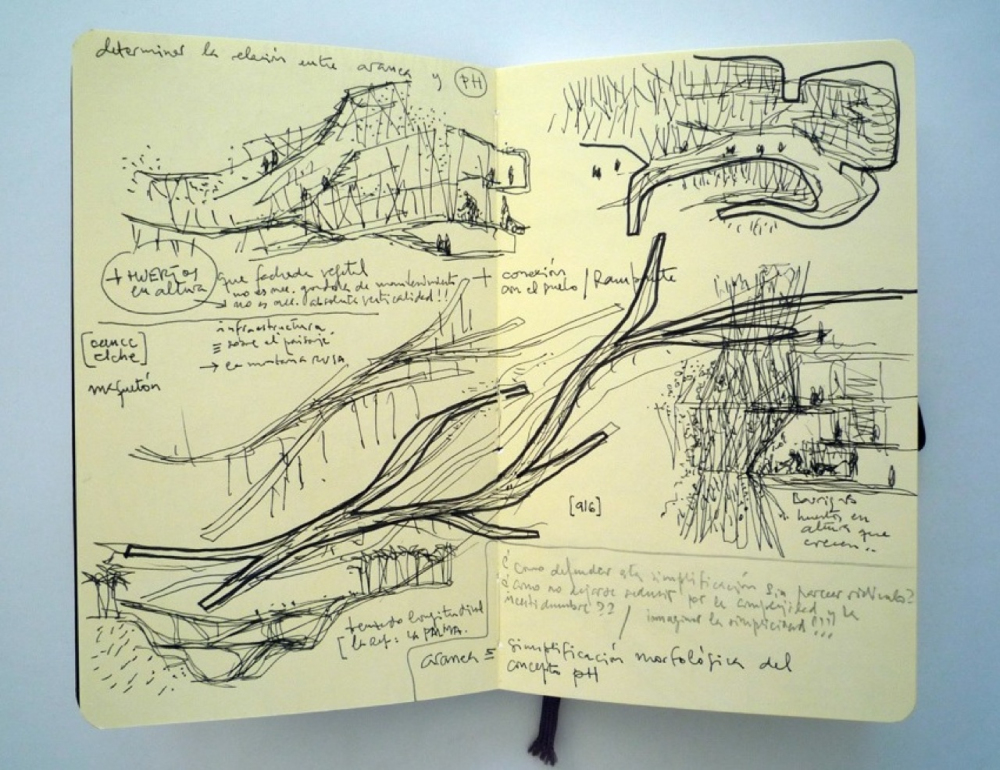 determinar la relación entre aranea y PH
+ HUERTOS
en altura
que fachada vegetal
no es nec. gondolas de mantenimiento
→ no es nec. absoluta verticalidad!!
+ conexión
con el suelo / Rampante
[cauce
elche]
maquetón
infraestructura
≡ sobre el paisaje
→ en montaña RUSA
[a/6]
Barrigas
huertos en
altura que
crecen..
¿como defender esta simplificación sin parecer ridículos?
¿como no dejarse seducir por la complejidad y la
incertidumbre?? / imaginar la simplicidad!!!
longitudinal
[la ref: LA PALMA.
aranea = simplificación morfológica del
concepto pH